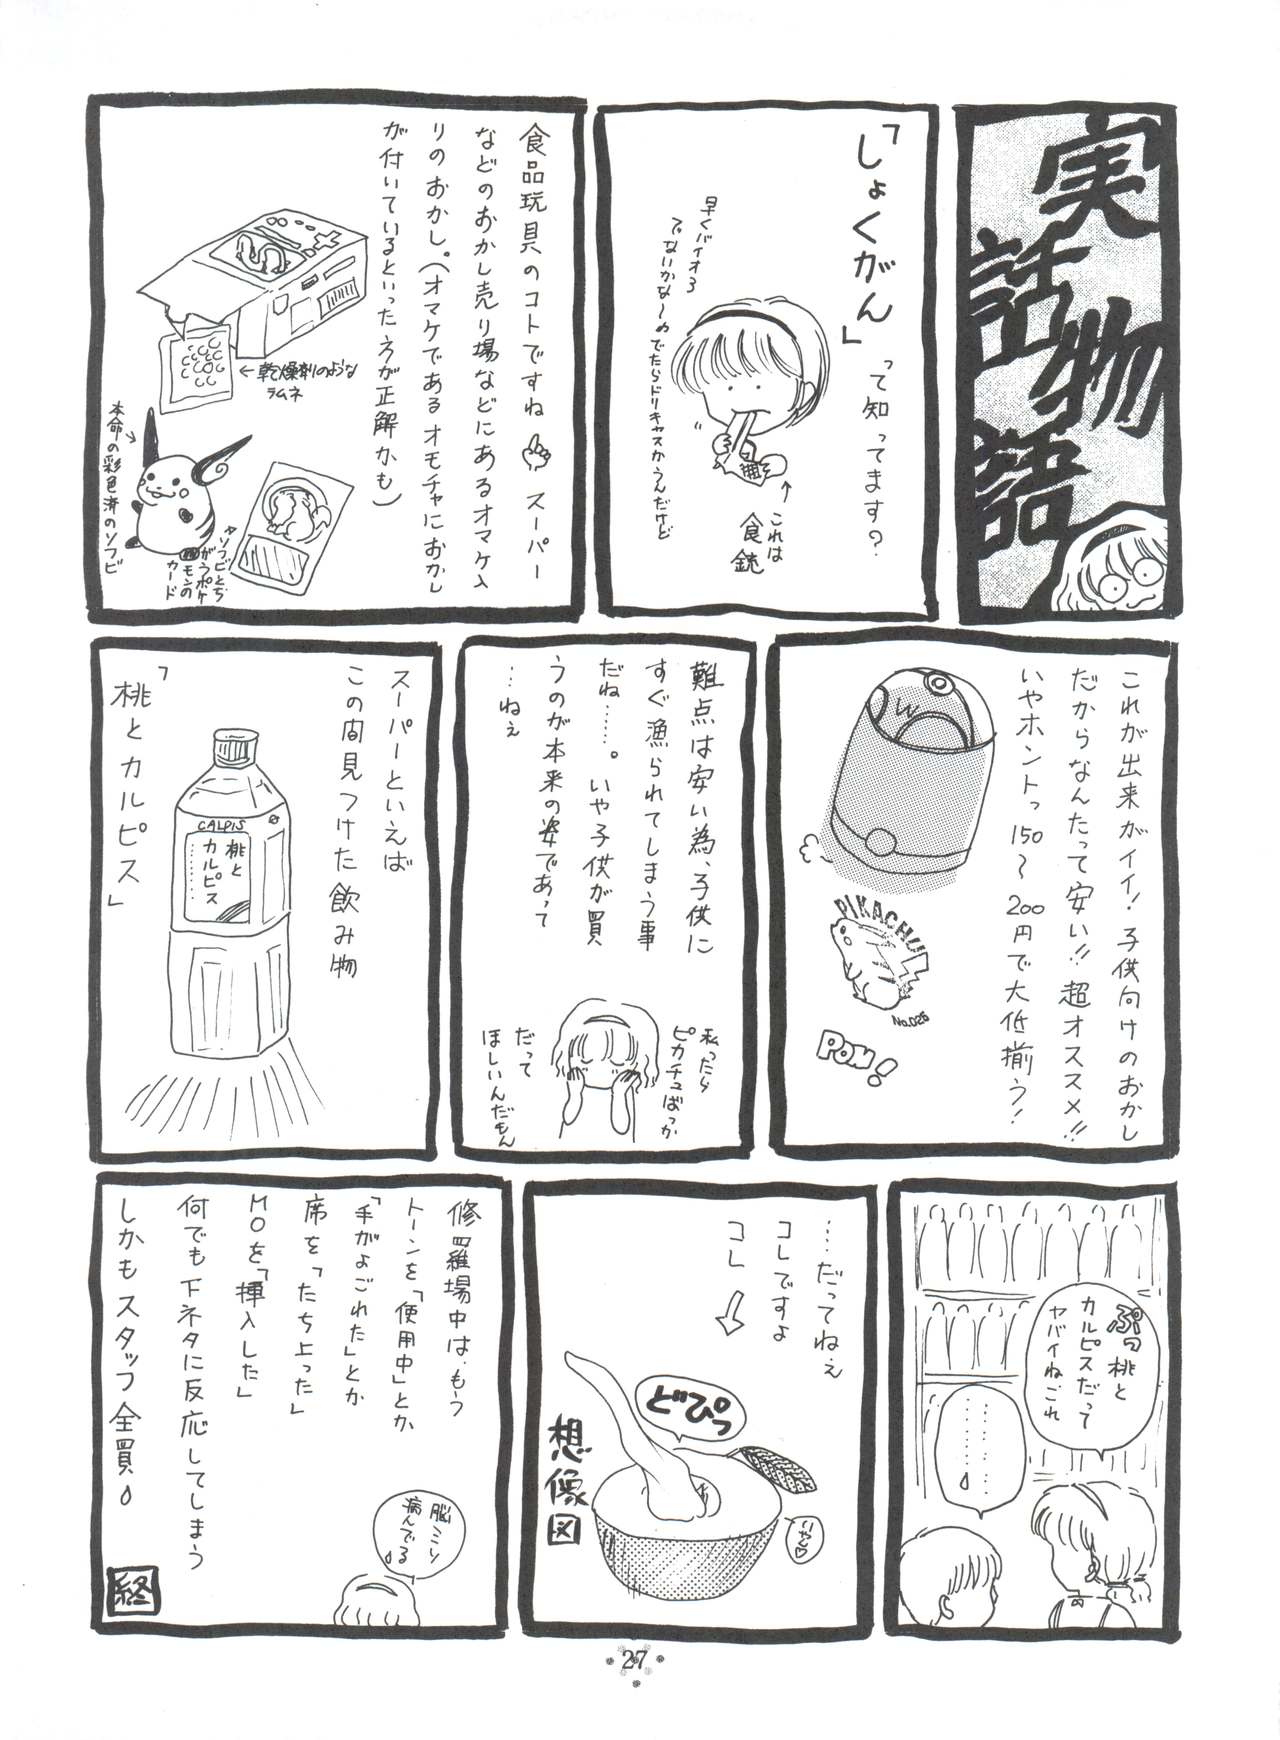 実話物語
「しょくがん」
って知ってます?
早くバイオ3
でないかな～のでたらドリキャスかうんだけど
これは
食銃
食品玩具のコトですね スーパー
などのおかし売り場などにあるオマケ入
りのおかし。(オマケであるオモチャにおかし
が付いているといった方が正解かも)
←乾燥剤のような
ラムネ
本命の彩色済のソフビ
ソフビとち
がうポケ
モンの
カード
これが出来がイイ!子供向けのおかし
だからなんたって安い!!超オススメ!!
いやホントっ150～200円で大低揃う!
PIKACHU
No.026
POM!
難点は安い為、子供に
すぐ漁られてしまう事
だね……。いや子供が買
うのが本来の姿であって
…ねぇ
私ったら
ピカチュばっか
だって
ほしいんだもん
スーパーといえば
この間見つけた飲み物
「桃とカルピス」
CALPIS
桃と
カルピス
ぷっ桃と
カルピスだって
ヤバイねこれ
………
………
……だってねぇ
コレですよ
コレ
どぴっ
いやん♡
想像図
修羅場中は、もう
トーンを「使用中」とか
「手がよごれた」とか
席を「たち上った」
MOを「挿入した」
何でも下ネタに反応してしまう
しかもスタッフ全員
脳ミソ
病んでる
終
27